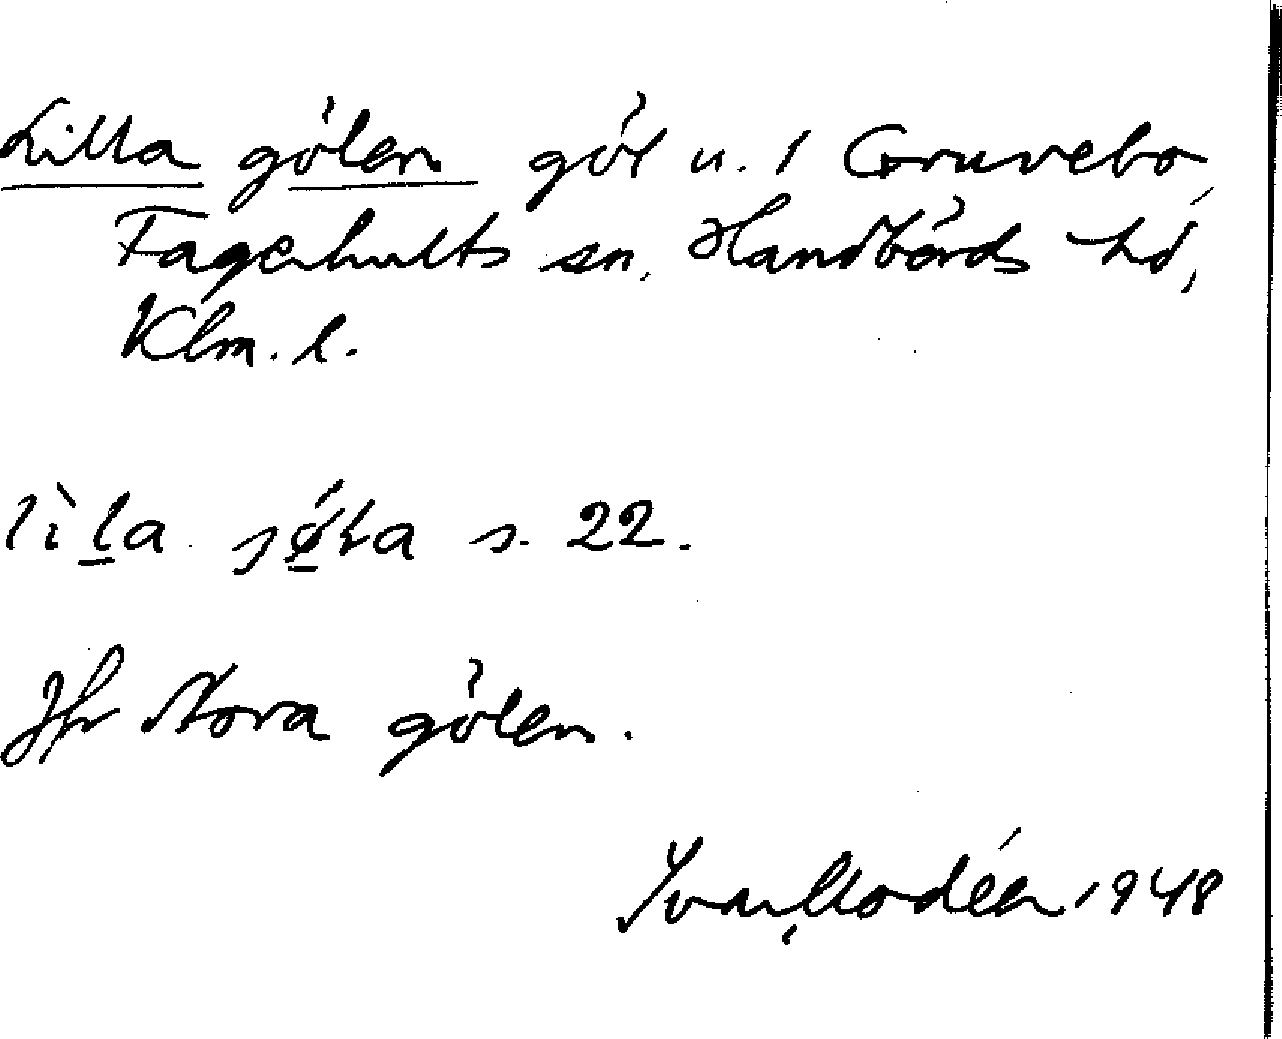 Lilla gölen göl u. 1 Gruvebo,
Fagerhults sn, Handbörds hd,
Klm. l.
s. 22.
Jfr Stora gölen.
Ivar Modéer 1948